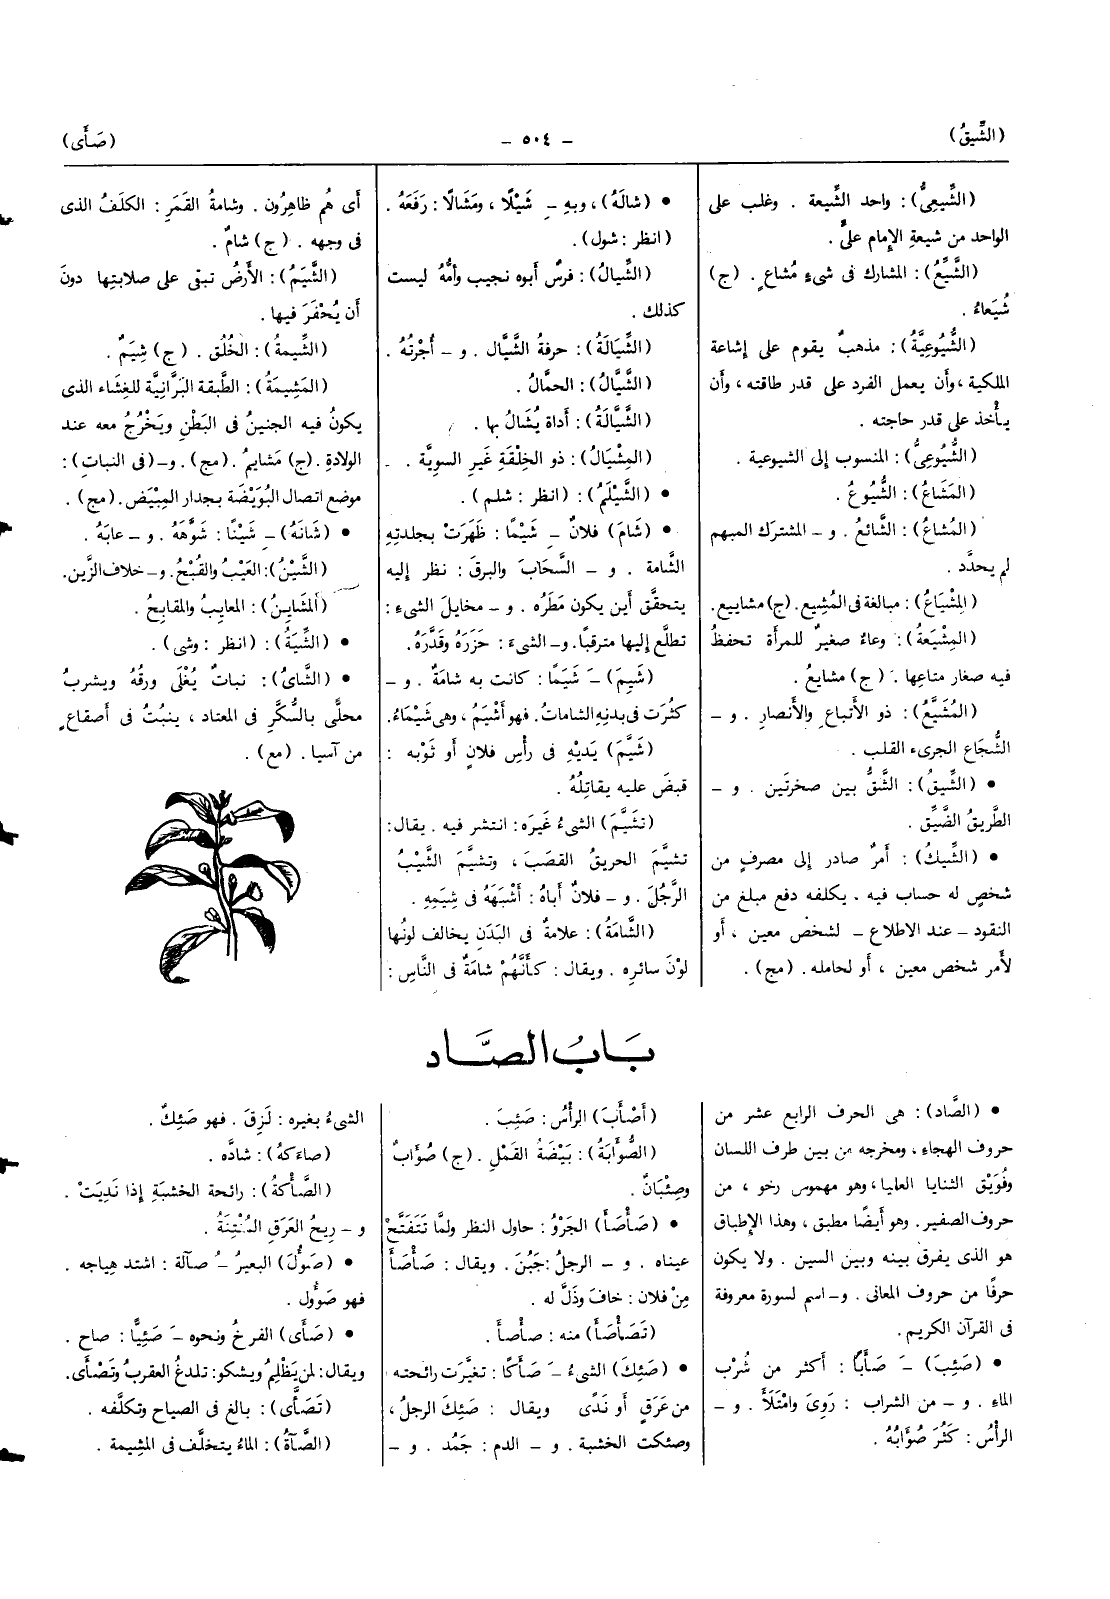 (الشِّيقُ)
- ٥٠٤ -
(صَأَى)
(الشِّيعِىُّ): واحد الشِّيعة . وغلب على
الواحد من شيعةِ الإمام علىٍّ .
(الشَّيِّعُ): المشارك فى شىءٍ مُشاع . (ج)
شُيَعاءُ .
(الشُّيُوعِيَّةُ): مذهبٌ يقوم على إشاعة
الملكية ، وأن يعمل الفرد على قدر طاقته ، وأن
يأخذ على قدر حاجته .
(الشُّيُوعِىُّ): المنسوب إلى الشيوعية .
(المَشَاعُ): الشُّيُوعُ .
(المُشاعُ): الشَّائعُ . و - المشترك المبهم
لم يحدَّد .
(المِشْيَاعُ): مبالغة فى المُشِيع. (ج) مشاييع.
(المِشْيَعَةُ): وعاءٌ صغيرٌ للمرأة تحفظُ
فيه صغار متاعِها . (ج) مشايعُ .
(المُشَيَّعُ): ذو الأتباعِ والأنصارِ . و -
الشُّجَاع الجرىء القلب .
• (الشِّيقُ): الشَّقُّ بين صخرتَين . و -
الطَّريقُ الضَّيِّق .
• (الشِّيكُ): أمرٌ صادر إلى مصرفٍ من
شخصٍ له حساب فيه . يكلفه دفع مبلغ من
النقود - عند الاطلاع - لشخص معين ، أو
لأمر شخص معين ، أو لحامله . (مج) .
• (شالَهُ) ، وبهِ - شَيْلًا ، ومَشَالًا : رَفَعَهُ .
(انظر : شول) .
(الشِّيالُ): فرسٌ أبوه نجيب وأمُّهُ ليست
كذلك .
(الشِّيَالَةُ): حرفةُ الشَّيَّال . و - أُجْرتُهُ .
(الشَّيَّالُ): الحمَّالُ .
(الشَّيَّالَةُ): أداة يُشَالُ بها .
(المِشْيَالُ): ذو الخِلْقَةِ غَيرِ السويَّة .
• (الشَّيْلَمُ): (انظر : شلم) .
• (شَامَ) فلانٌ - شَيْمًا : ظهَرَتْ بجلدتِهِ
الشَّامة . و - السَّحَابَ والبرقَ : نظر إليه
يتحقَّق أين يكون مَطَرُه . و - مخايلَ الشىءِ :
تطلَّع إليها مترقبًا. و- الشىءَ : حَزَرَهُ وقَدَّرَهُ.
(شَيِمَ) -َ شَيَمًا : كانت به شامةٌ . و -
كثُرَت فى بدنِهِ الشاماتُ. فهو أَشْيَمُ ، وهى شَيْمَاءُ.
(شَيَّمَ) يَدَيْهِ فى رأسِ فلانٍ أو ثَوْبه :
قبضَ عليه يقاتِلُهُ .
(تشَيَّمَ) الشىءُ غَيرَه : انتشر فيه . يقال :
تشيَّمَ الحريقُ القصَبَ ، وتشيَّمَ الشَّيْبُ
الرَّجُلَ . و - فلانٌ أباهُ : أشْبَهَهُ فى شِيَمِهِ .
(الشَّامَةُ): علامةٌ فى البَدَنِ يخالف لونُها
لوْنَ سائرِه . ويقال : كأنَّهُمْ شامَةٌ فى النَّاسِ :
أى هُم ظاهِرُون . وشامةُ القمَرِ : الكلَفُ الذى
فى وجهه . (ج) شامٌ .
(الشَّيَمُ): الأَرضُ تبقى على صلابتِها دونَ
أن يُحْفَرَ فيها .
(الشِّيمةُ): الخُلُق . (ج) شِيَمٌ .
(المَشِيمَةُ): الطَّبقة البَرَّانِيَّة للغِشَاء الذى
يكونُ فيه الجنينُ فى البَطْنِ ويَخْرُجُ معه عند
الولادةِ . (ج) مَشايمُ . (مج) . و-(فى النباتِ) :
موضع اتصال البُوَيْضَة بجدار المِبْيَض . (مج) .
• (شَانَهُ) - شَيْنًا : شَوَّهَهُ . و - عابَهُ .
(الشَّيْنُ): العَيْبُ والقُبْحُ. و- خلاف الزَّين.
(المَشَايِنُ): المعايِبُ والمقابِحُ .
• (الشِّيَةُ): (انظر : وشى) .
• (الشَّاىُ): نباتٌ يُغْلَى ورقُهُ ويشربُ
محلًّى بالسُّكَّرِ فى المعتاد ، ينبُتُ فى أصقاعٍ
من آسيا . (مع) .
بَابُ الصَّاد
• (الصَّاد): هى الحرف الرابع عشر من
حروف الهجاء ، ومخرجه من بين طرف اللسان
وفُوَيْق الثنايا العليا ، وهو مهموس رخو ، من
حروف الصفير. وهو أيضًا مطبق ، وهذا الإطباق
هو الذى يفرق بينه وبين السين . ولا يكون
حرفًا من حروف المعانى . و- اسم لسورة معروفة
فى القرآن الكريم .
• (صَئِبَ) -َ صَأَبًا : أكثر من شُرْب
الماءِ . و - من الشراب : رَوِىَ وامْتَلَأَ . و -
الرأْسُ : كَثُرَ صُؤَابُهُ .
(أصْأَبَ) الرأسُ : صَئِبَ .
(الصُّؤابَةُ): بَيْضَةُ القَمْلِ . (ج) صُؤَابٌ
وصِئْبَانٌ .
• (صَأْصَأَ) الجَرْوُ : حاول النظر ولمَّا تَتَفَتَّحْ
عيناه . و - الرجلُ : جَبُنَ . ويقال : صَأْصَأَ
مِنْ فلان : خافَ وذَلَّ له .
(تَصَأْصَأَ) منه : صأصأ .
• (صَئِكَ) الشىءُ -َ صَأَكًا : تغيَّرَت رائحته
من عَرَقٍ أو نَدًى ويقال : صَئِكَ الرجلُ ،
وصئكت الخشبة . و - الدم : جَمُد . و -
الشىءُ بغيره : لَزِقَ . فهو صَئِكٌ .
(صاءَكهُ): شادَّه .
(الصَّأْكَةُ): رائحة الخشبةِ إذا نَدِيَتْ .
و - رِيحُ العَرَقِ المُنْتِنَةُ .
• (صَؤُلَ) البعيرُ -ُ صآلة : اشتد هِياجه .
فهو صَؤُول .
• (صَأَى) الفرخُ ونحوه -َ صَئِيًّا : صاح .
ويقال : لمن يَظْلِمُ ويشكو : تلدغُ العقربُ وتَصْأَى .
(تَصَأَّى): بالغ فى الصياح وتكلَّفه .
(الصَّآةُ): الماءُ يتخلَّف فى المشِيمة .